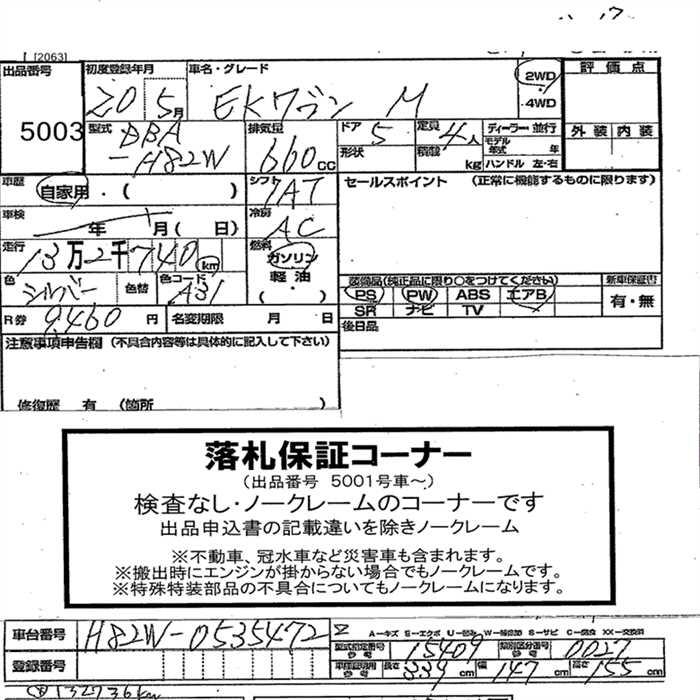 [2063]
出品番号 初度登録年月 車名・グレード 2WD ・4WD 評価点
5003 20 5月 EKワゴン M 外装 内装
型式 DBA-H82W 排気量 660cc ドア 5 形状 定員 4人 積載 kg ディーラー・並行 モデル年式 年 ハンドル 左・右
車歴 自家用・( ) シフト IAT セールスポイント (正常に機能するものに限ります)
車検 年 月( 日) 冷房 AC
走行 13万2千740km 燃料 ガソリン 軽油 ・( )
色 シルバー 色替 色コード A31
装備品(純正品に限り○をつけてください) 新車保証書
PS PW ABS エアB 有・無
SR ナビ TV
R券 9,460円 名変期限 月 日 後日品
注意事項申告欄 (不具合内容等は具体的に記入して下さい)
修復歴 有 (箇所 )
落札保証コーナー
(出品番号 5001号車~)
検査なし・ノークレームのコーナーです
出品申込書の記載違いを除きノークレーム
※不動車、冠水車など災害車も含まれます。
※搬出時にエンジンが掛からない場合でもノークレームです。
※特殊特装部品の不具合についてもノークレームになります。
車台番号 H82W-0535472 A-キズ
型式指定番号 参考 15409 類別区分番号 参考 0027
登録番号 車種証明用 参考 長さ 339cm 幅 147cm 高さ 155cm
132736km